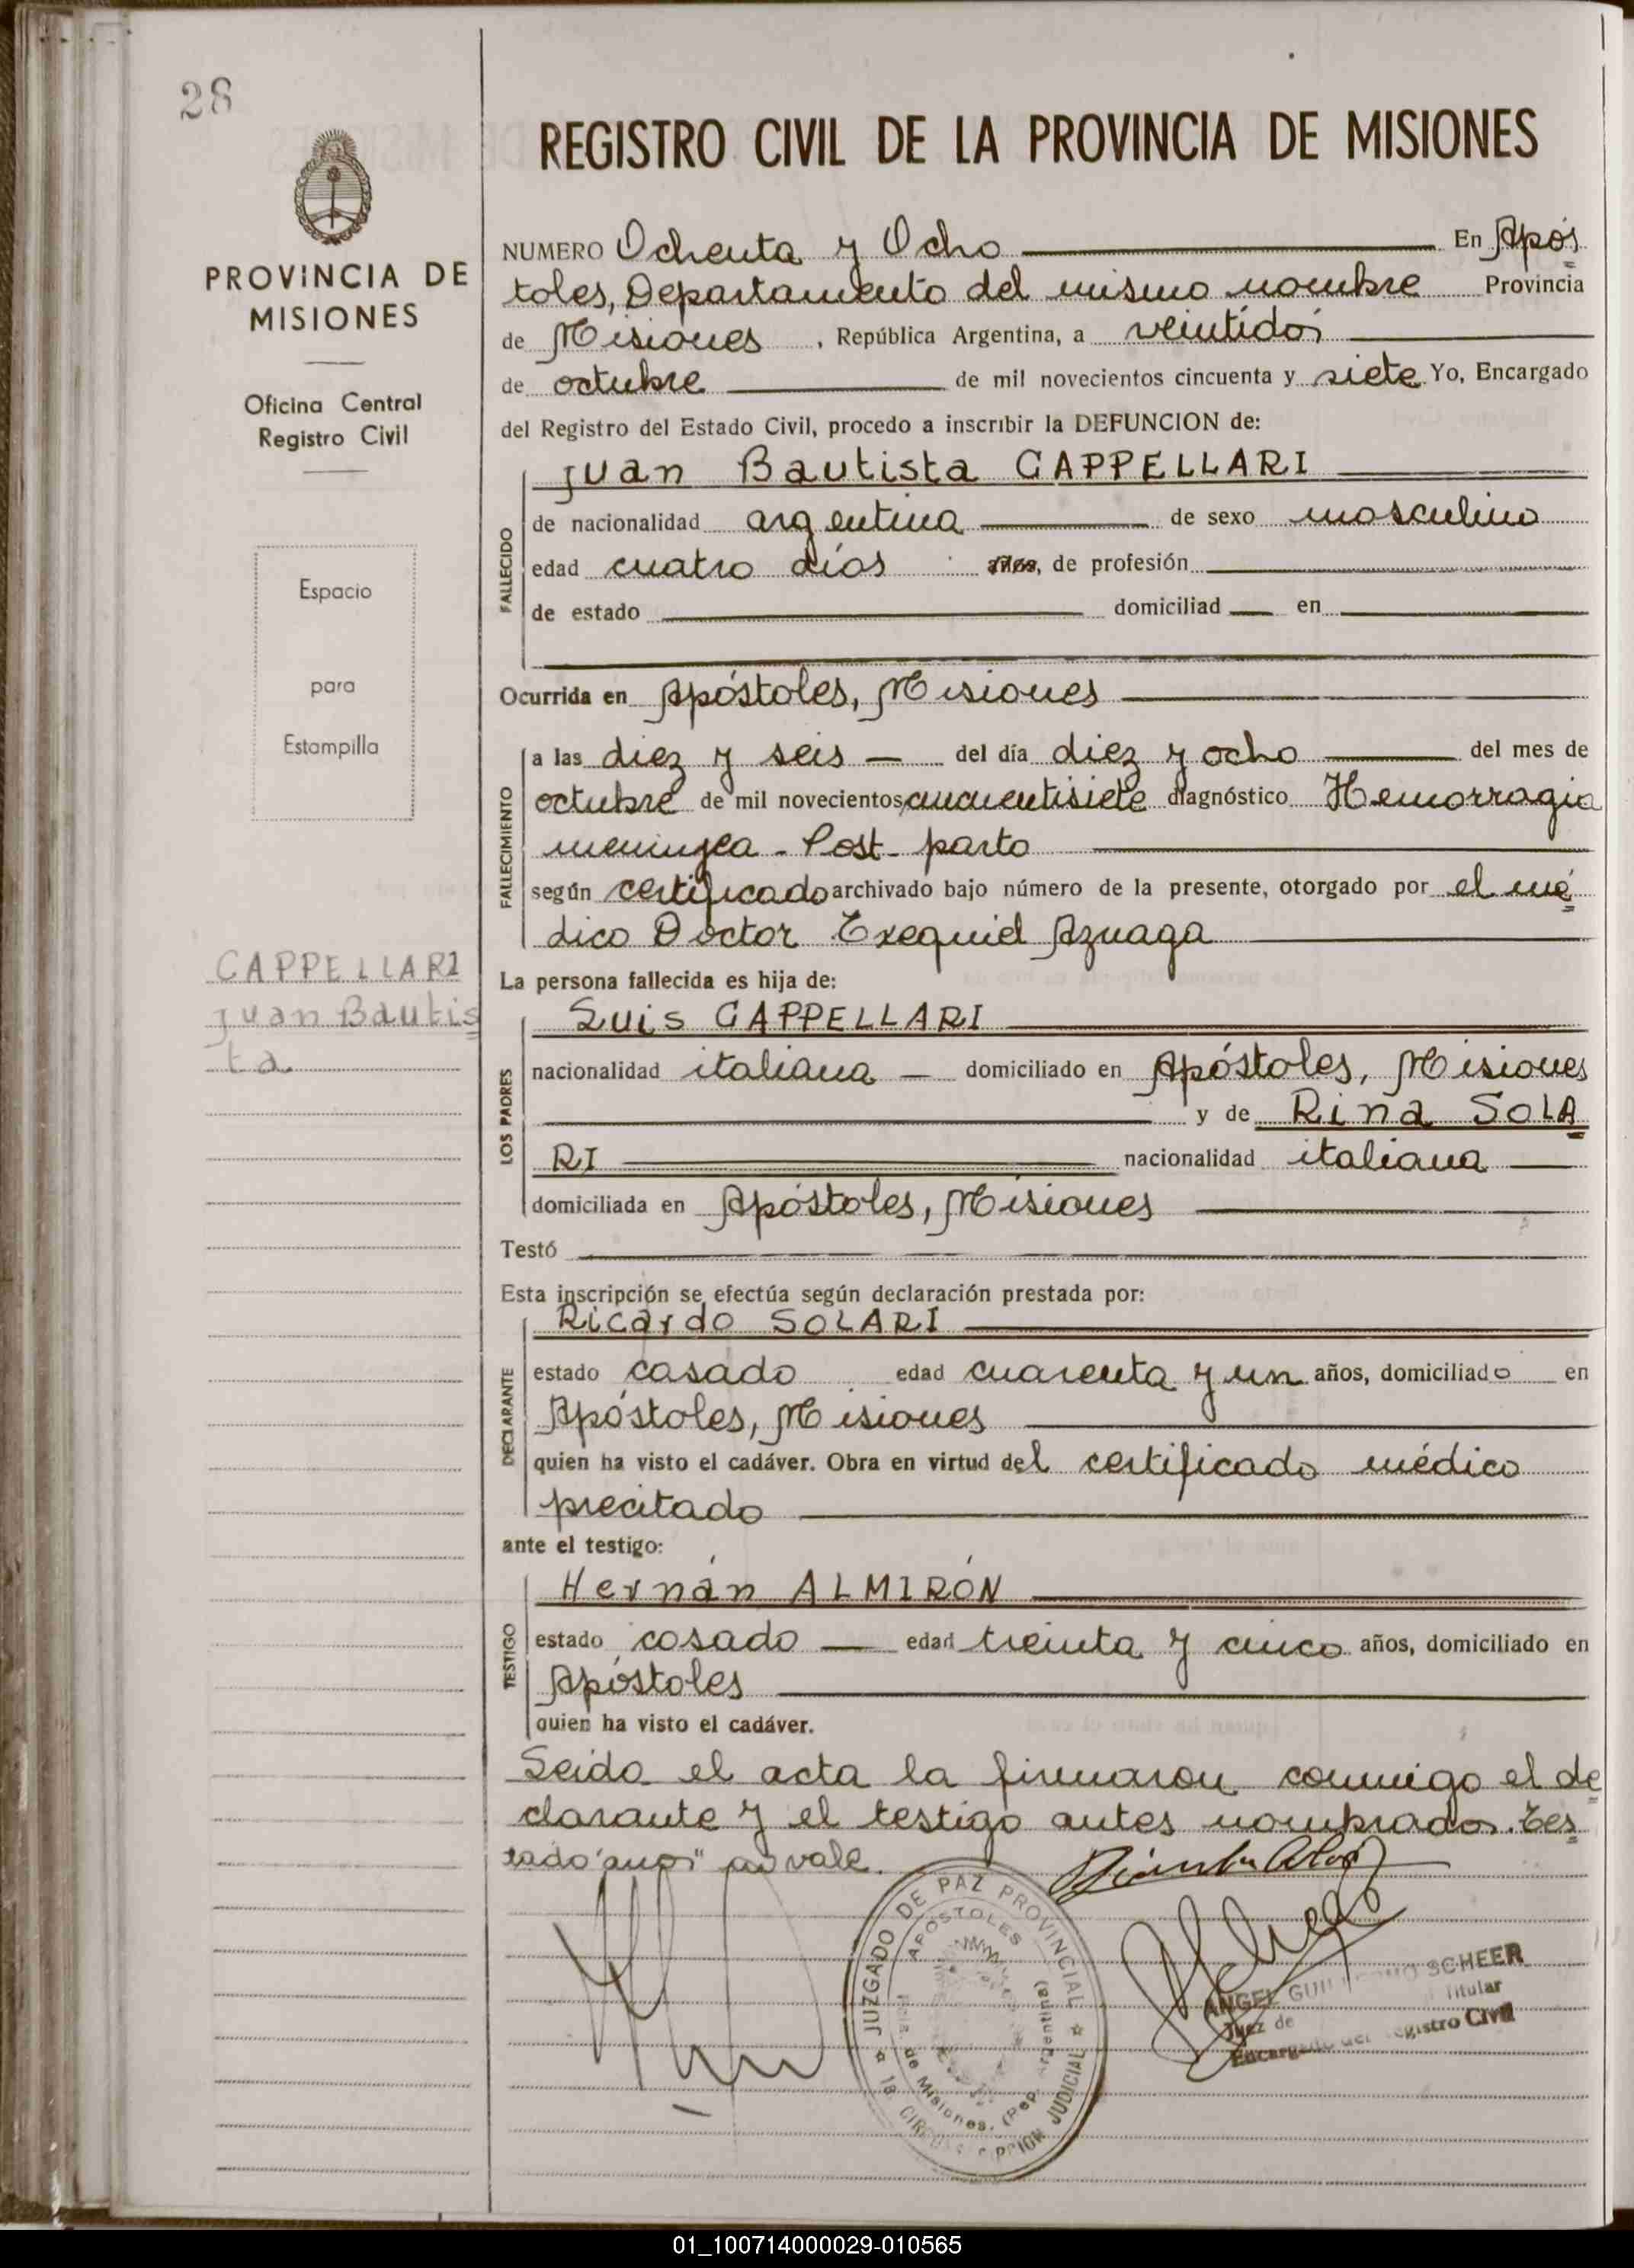 28
PROVINCIA DE
MISIONES
Oficina Central
Registro Civil
Espacio
para
Estampilla
CAPPELLARI
Juan Bautis
ta
REGISTRO CIVIL DE LA PROVINCIA DE MISIONES
NUMERO Ochenta y Ocho En Após
toles, Departamento del mismo nombre Provincia
de Misiones, República Argentina, a veintidós
de octubre de mil novecientos cincuenta y siete Yo, Encargado
del Registro del Estado Civil, procedo a inscribir la DEFUNCION de:
Juan Bautista CAPPELLARI
FALLECIDO
de nacionalidad argentina de sexo masculino
edad cuatro días años, de profesión
de estado domiciliad en
Ocurrida en Apóstoles, Misiones
FALLECIMIENTO
a las diez y seis — del día diez y ocho del mes de
octubre de mil novecientos cincuentisiete diagnóstico Hemorragia
meningea - Post - parto
según certificado archivado bajo número de la presente, otorgado por el mé
dico Doctor Exequiel Azuaga
La persona fallecida es hija de:
LOS PADRES
Luis CAPPELLARI
nacionalidad italiana — domiciliado en Apóstoles, Misiones
y de Rina SOLA
RI nacionalidad italiana
domiciliada en Apóstoles, Misiones
Testó
Esta inscripción se efectúa según declaración prestada por:
DECLARANTE
Ricardo SOLARI
estado casado edad cuarenta y un años, domiciliado en
Apóstoles, Misiones
quien ha visto el cadáver. Obra en virtud del certificado médico
precitado
ante el testigo:
TESTIGO
Hernán ALMIRÓN
estado casado — edad treinta y cinco años, domiciliado en
Apóstoles
quien ha visto el cadáver.
Leída el acta la firmaron conmigo el de
clarante y el testigo antes nombrados. Tes
tado "años" no vale.
JUZGADO DE PAZ PROVINCIAL
APOSTOLES
de Misiones. (Rep. Argentina)
JUDICIAL
ANGEL GUILLERMO SCHEER
Titular
Juez de
Encargado del Registro Civil
01_100714000029-010565